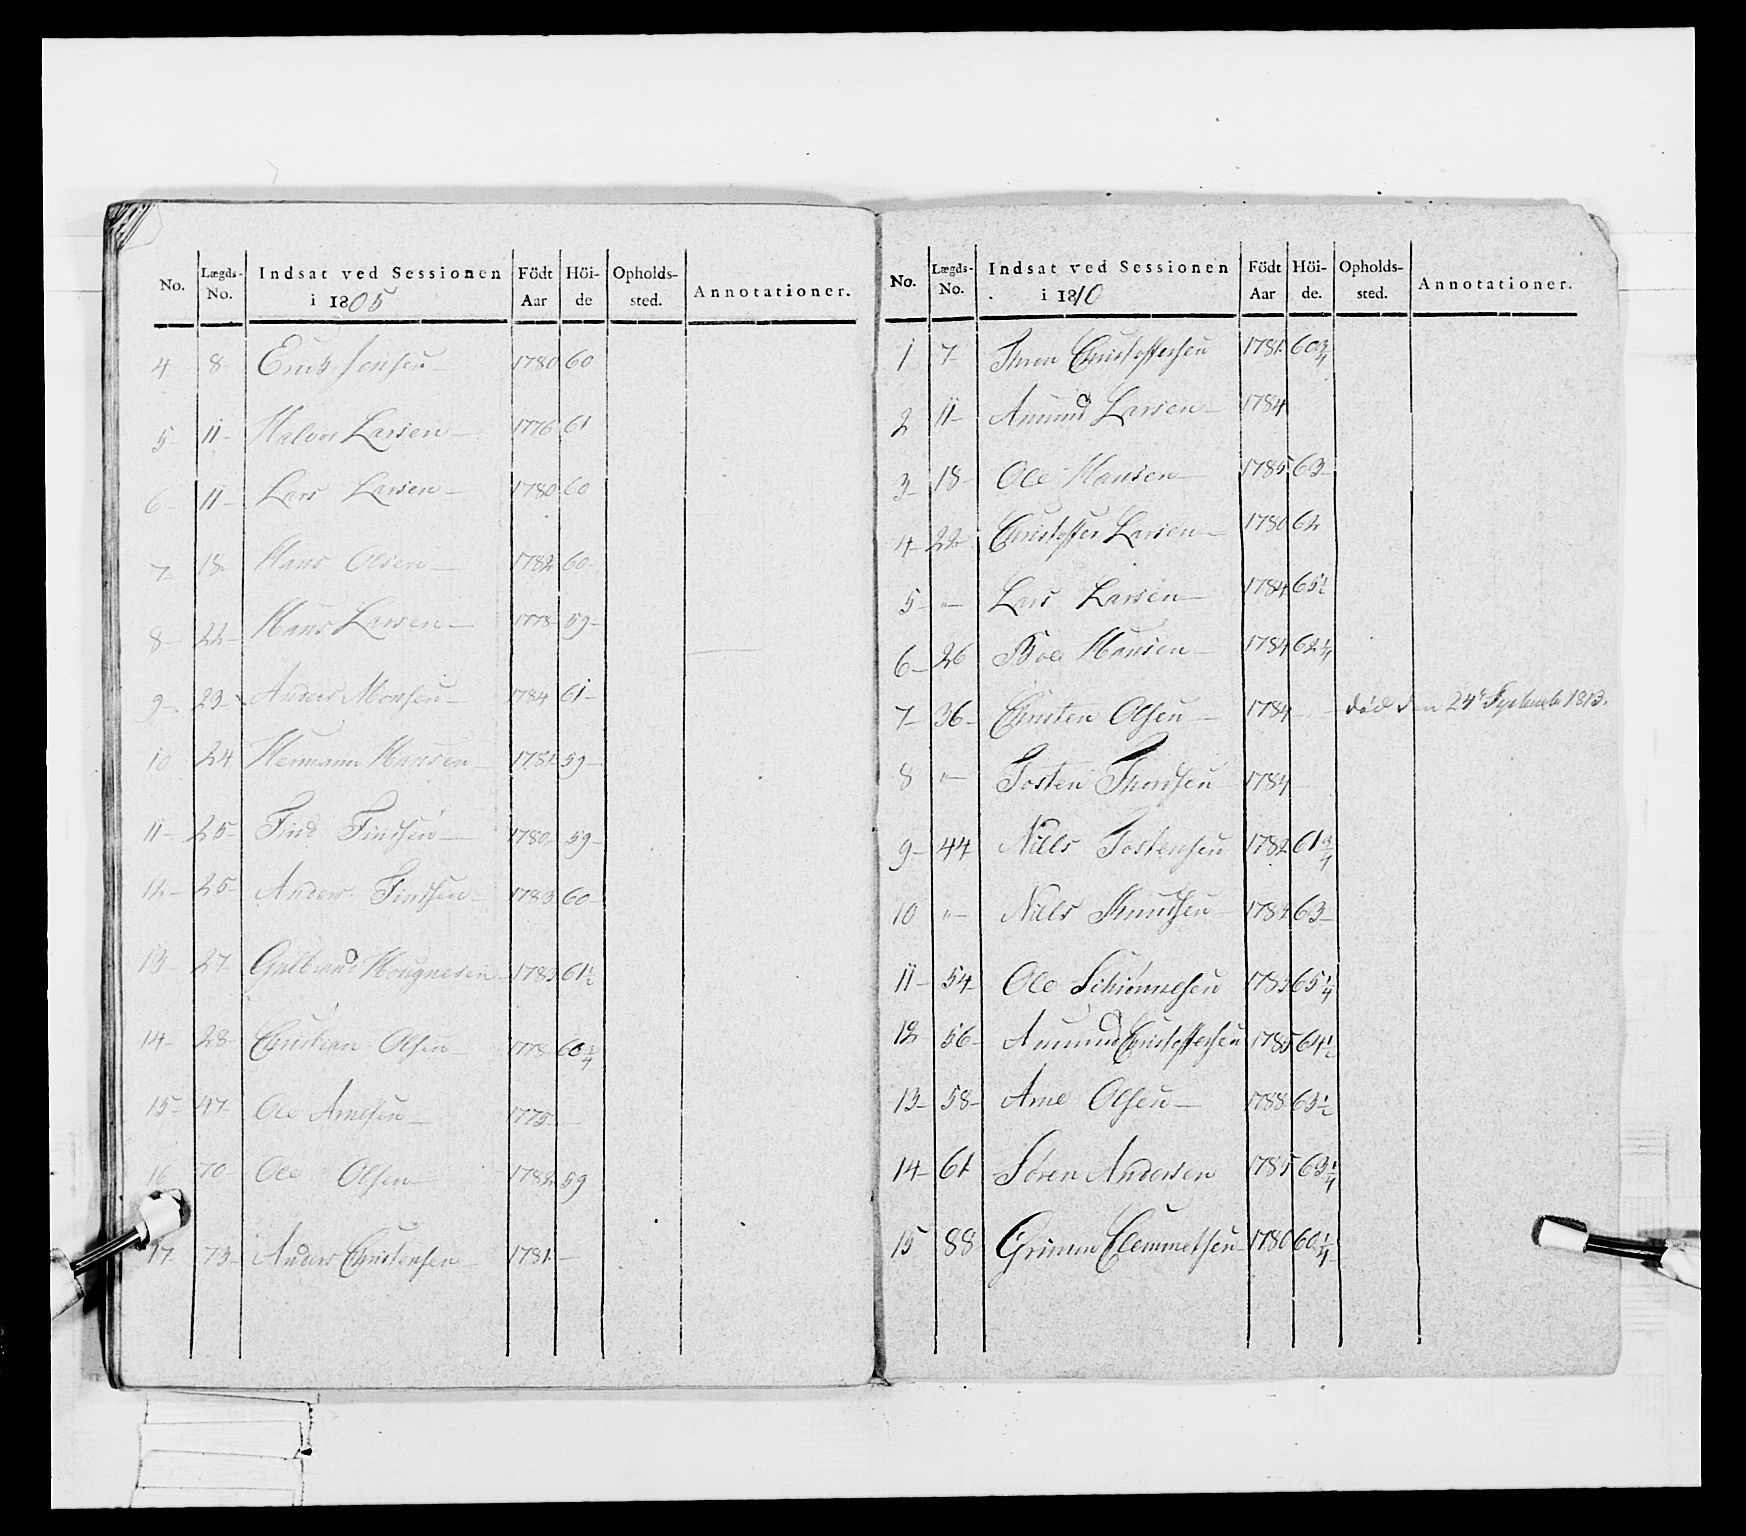 No. Lægds-No. Indsat ved Sessionen i 1805 Födt Aar Höide Opholdssted. Annotationer.
4 8 Erich Jensen 1780 60
5 11 Halvor Larsen 1776 61
6 11 Lars Larsen 1780 60
7 18 Hans Olsen 1782 60
8 22 Hans Larsen 1778 59
9 23 Anders Monsen 1784 61
10 24 Hermann Hansen 1781 59
11 25 Find Findsen 1780 59
12 25 Anders Findsen 1783 60
13 27 Gulbrand 1783 61½
14 28 Christian Olsen 60¼
15 47 Ole Arnesen 1775
16 70 Ole Olsen 1782 59
17 73 Anders Christensen 1781
No. Lægds-No. Indsat ved Sessionen i 1810 Födt Aar Höide. Opholdssted. Annotationer.
1 7 Christoffersen 1781 60¾
2 11 Amund Larsen 1784
3 18 Ole Hansen 1785 63
4 22 Christoffer Larsen 1780 62
5 " Lars Larsen 1784 65½
6 26 Boe Hansen 1784 62¼
7 36 Christen Olsen 1784 död den 24de September 1813.
8 " Tosten Thordsen 1784
9 44 Niels Tostensen 1782 61¾
10 " Niels Knudsen 1782 63
11 54 Ole 1783 65¼
12 56 Amund Christoffersen 1785 64½
13 58 Arne Olsen 1788 63½
14 61 Sören Andersen 1785 63¼
15 88 Grimm Clemmetsen 1780 60¼